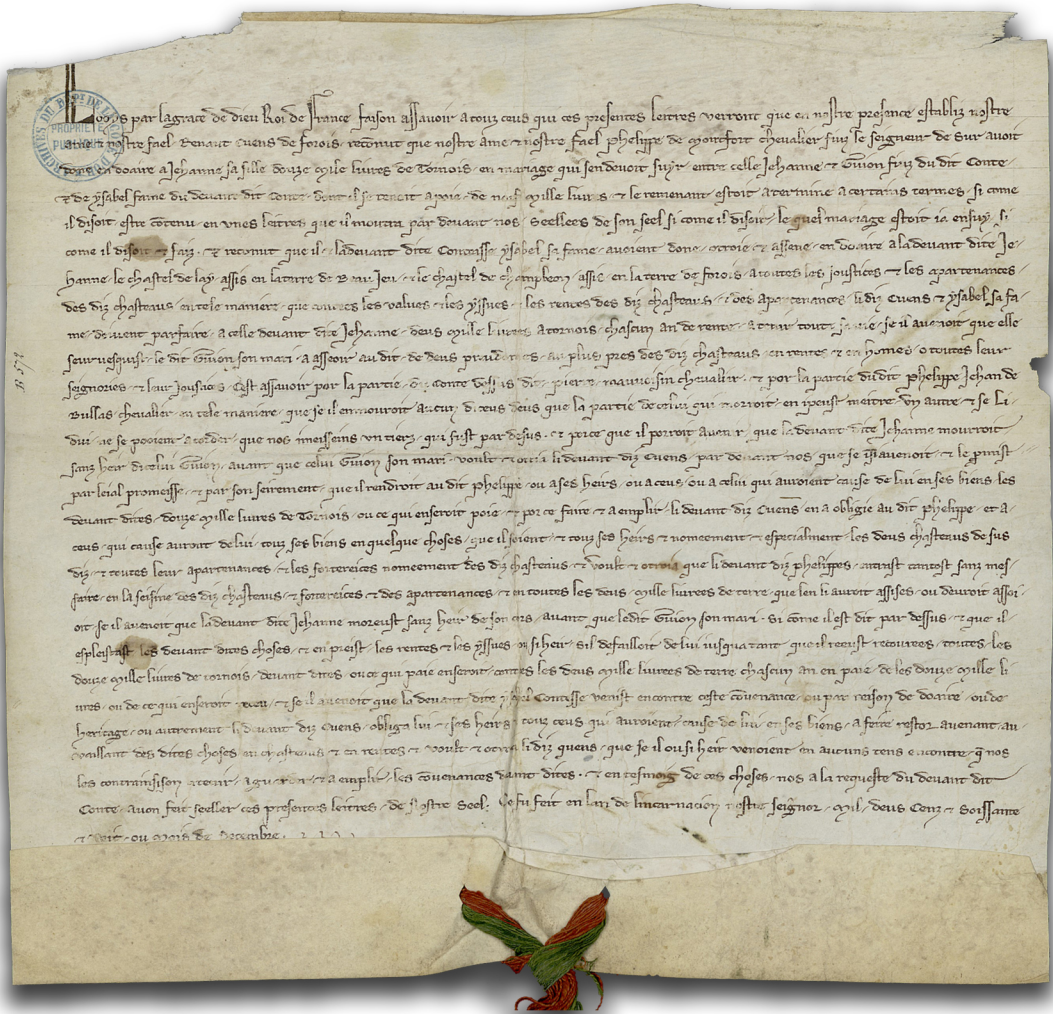 Looys par la grace de dieu Roi de France faison assavoir a touz ceus qui ces presentes lettres verront que en nostre presance establiz nostre
ame & nostre fael Renaut cuens de forois reconut que nostre ame & nostre fael Phelippe de Montfort chevalier fiuz le seigneur de Sur avoit
en doaire a Jehanne sa fille douze mile livres de Tornois en mariage qui sen devoit suyr entre celle Jehanne & Guion fiuz du dit Conte
& de ysabel fame du devant dit Conte dont il se tenoit a poié de mile livres & le remenant estoit a termine a certains termes si come
il disoit estre contenu en unes lettres que il moutra par devant nos seellees de son seel si come il disoit le quel mariage estoit ia ensuy si
come il disoit & faiz & reconut que il & la devant dite Contesse ysabel sa fame avoient done otroie & assene en doaire a la devant dite Je
hanne le chastel de lay assis en la terre de Beau Jeu & le chastel de champleon assis en la terre de forois a toutes les joustices & les apartenances
des diz chasteaus en tele maniere que toutes les values & les yssues & les rentes des diz chasteaus & des apartenances li diz Cuens & ysabel sa fa
me devent parfaire a celle devant dite Jehanne deus mile livres a tornois chascun an de rente a toute sa vie se il avenoit que elle
seurvesquist le dit Guion son mari a asseoir au dit de deus preudomes au plus pres des diz chasteaus en rentes & en homes o toutes leur
seignories & leur joustices Cest assavoir por la partie du Conte desus dit pierre mauvoisin chevalier & por la partie du dit Phelippe Jehan de
Bullas chevalier en tele maniere que se il en mouroit aucun de ceus deus que la partie de celui qui morroit en peust meitre un autre & se li
dui ne se pooient acorder que nos meissiens un tierz qui fust par desus & porce que il porroit avenir que la devant dite Jehanne mourroit
sanz heir de celui Guion avant que celui Guion son mari voult & otria li devant diz Cuens par devant nos que se issi avenoit & le promist
par leial promesse & par son seirement que il rendroit au dit Phelippe ou a ses heirs ou a ceus ou a celui qui auroient cause de lui en ses biens les
devant dites douze mile livres de Tornois ou ce qui en seroit poie & por ce faire & aemplir li devant diz Cuens en a obligie au dit phelippe et a
ceus qui cause auront de lui touz ses biens en quelque choses que il soient & touz ses heirs & nomeement & especialment les deus chasteaus desus
diz & toutes leur apartenances & les forterecces nomeement des diz chasteaus & voult & otroia que li devant diz phelippes entrast tantost sanz mes
faire en la seisine des diz chasteaus & forterecces & des apartenances & en toutes les deus mile livrees de terre que len li auroit assises ou devroit assei
oir se il avenoit que la devant dite Jehanne moreust sanz heir de son cors avant que ledit Guion son mari si come il est dit par dessus & que il
espleitast les devant dites choses & en preist les rentes & les yssues ou si heir sil defailloit de lui jusqua tant que il reeust recouvrees toutes les
douze mile livres de tornois devant dites ou ce qui paie en seroit contes les deus mile livrees de terre chascun an en paie de les douze mile li
vres ou de ce qui en seroit receu & se il avenoit que la devant dite ysabel Contesse venist encontre ceste covenance ou par reison de doaire ou de
heritage ou autrement li devant diz Cuens obliga lui & ses heirs & touz ceus qui auroient cause de lui en ses biens a feire restor avenant au
vaillant des dites choses en chasteaus & en rentes & voult & otria li diz quens que se il ou si heir venoient en aucuns tens encontre que nos
les contrainsison a tenir a garder & a emplir les covenances devant dites & en tesmoig de ces choses nos a la requeste du devant dit
Conte avon feit seeller ces presentes lettres de nostre seel. Ce fu feit en lan de lincarnacion nostre seignor mil deus Cenz & soissante
& wit ou mois de Decembre.
PROPRIETE PUBLIQUE